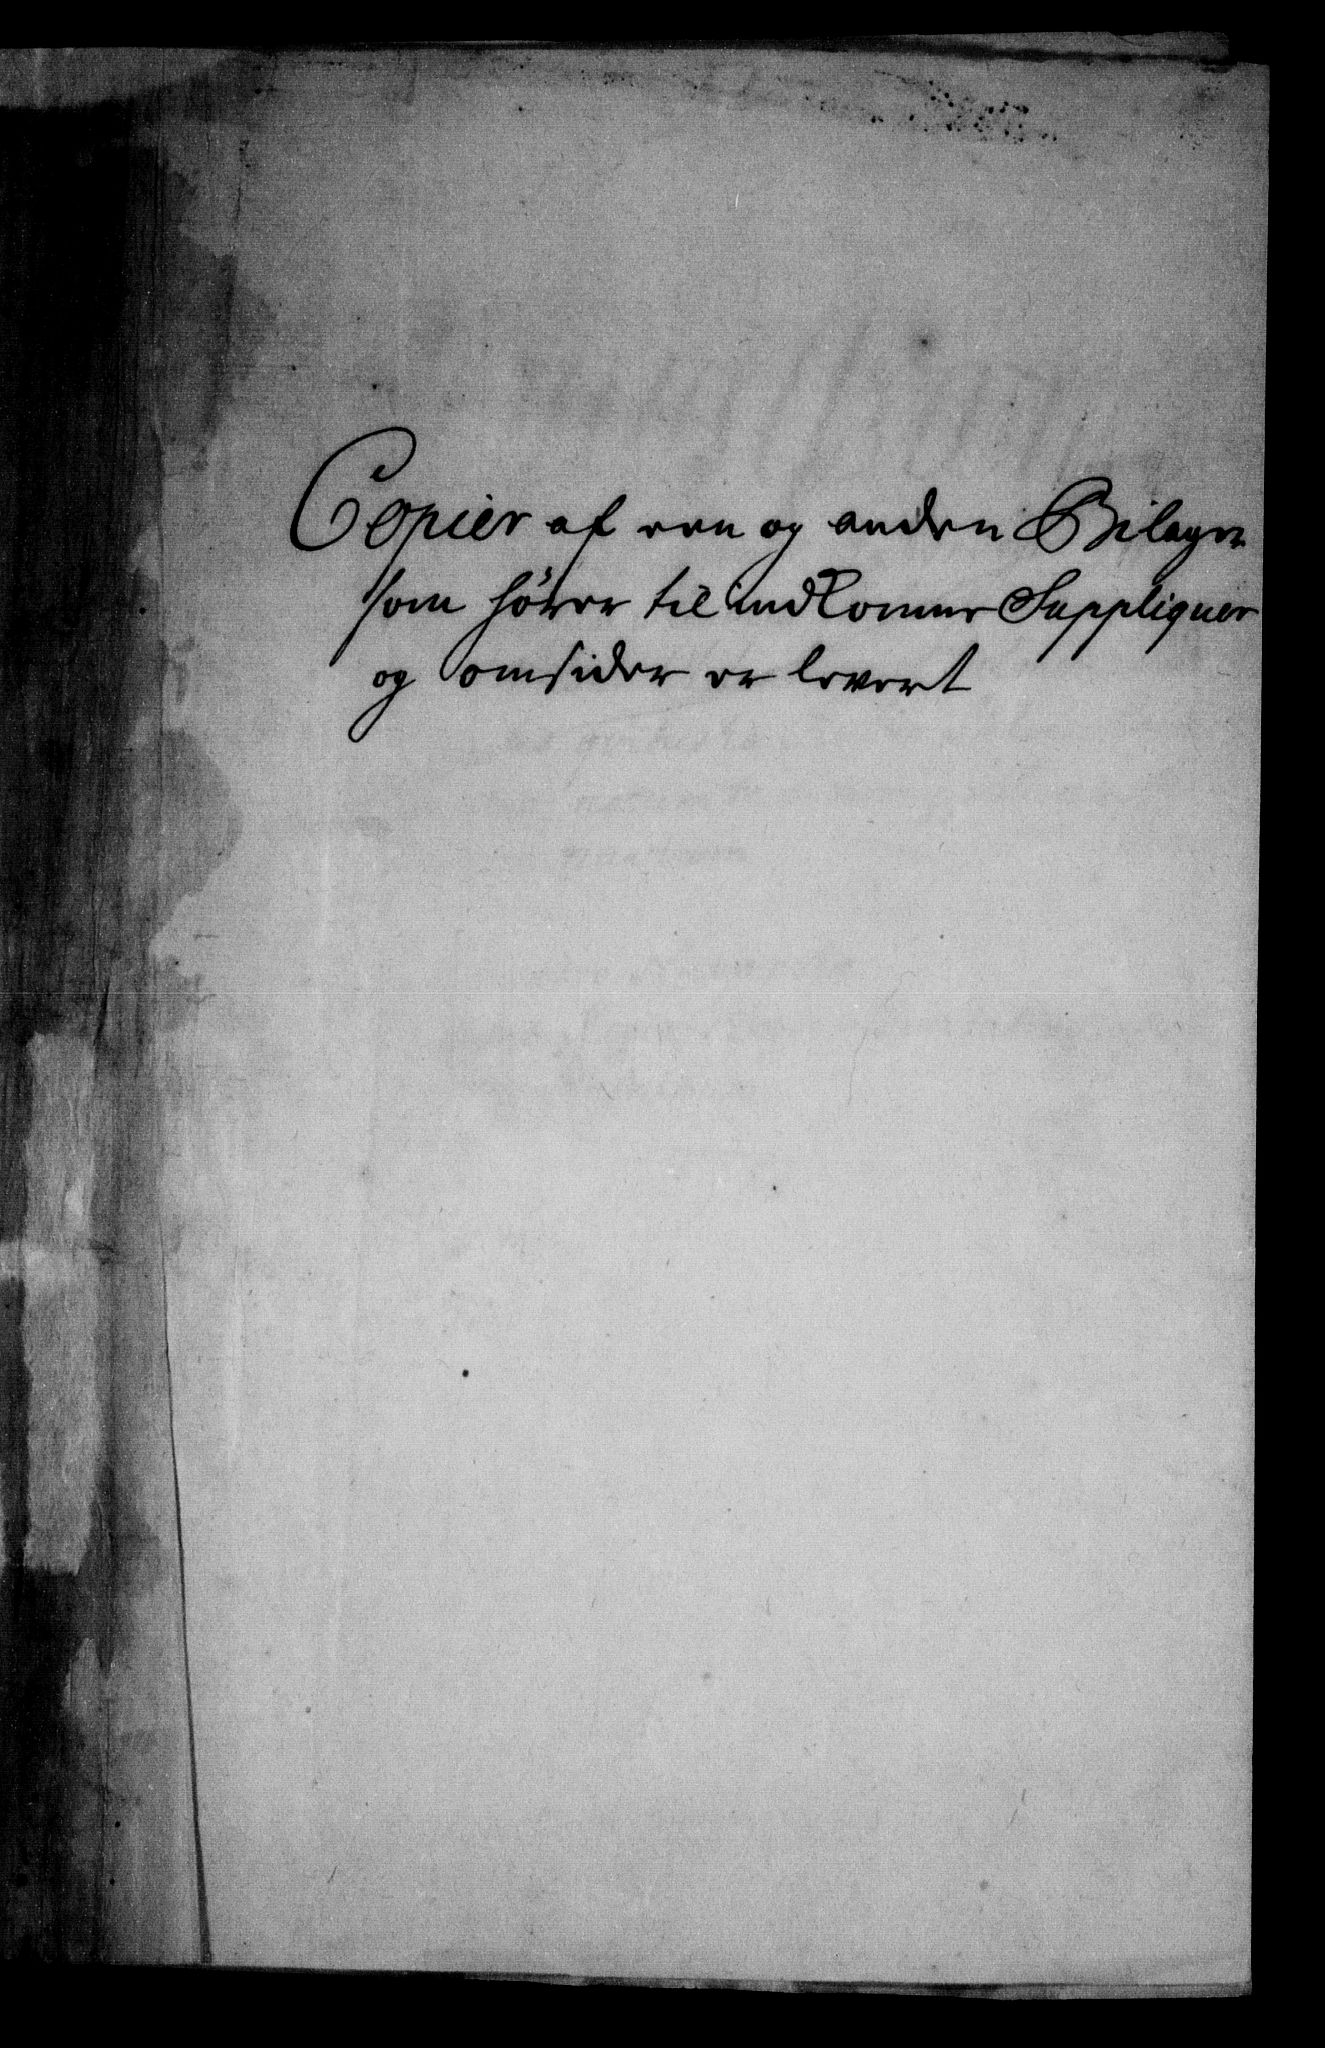 Copier af een og anden Bilager
som hører til indkomne Suppliquer
og omsider er levert